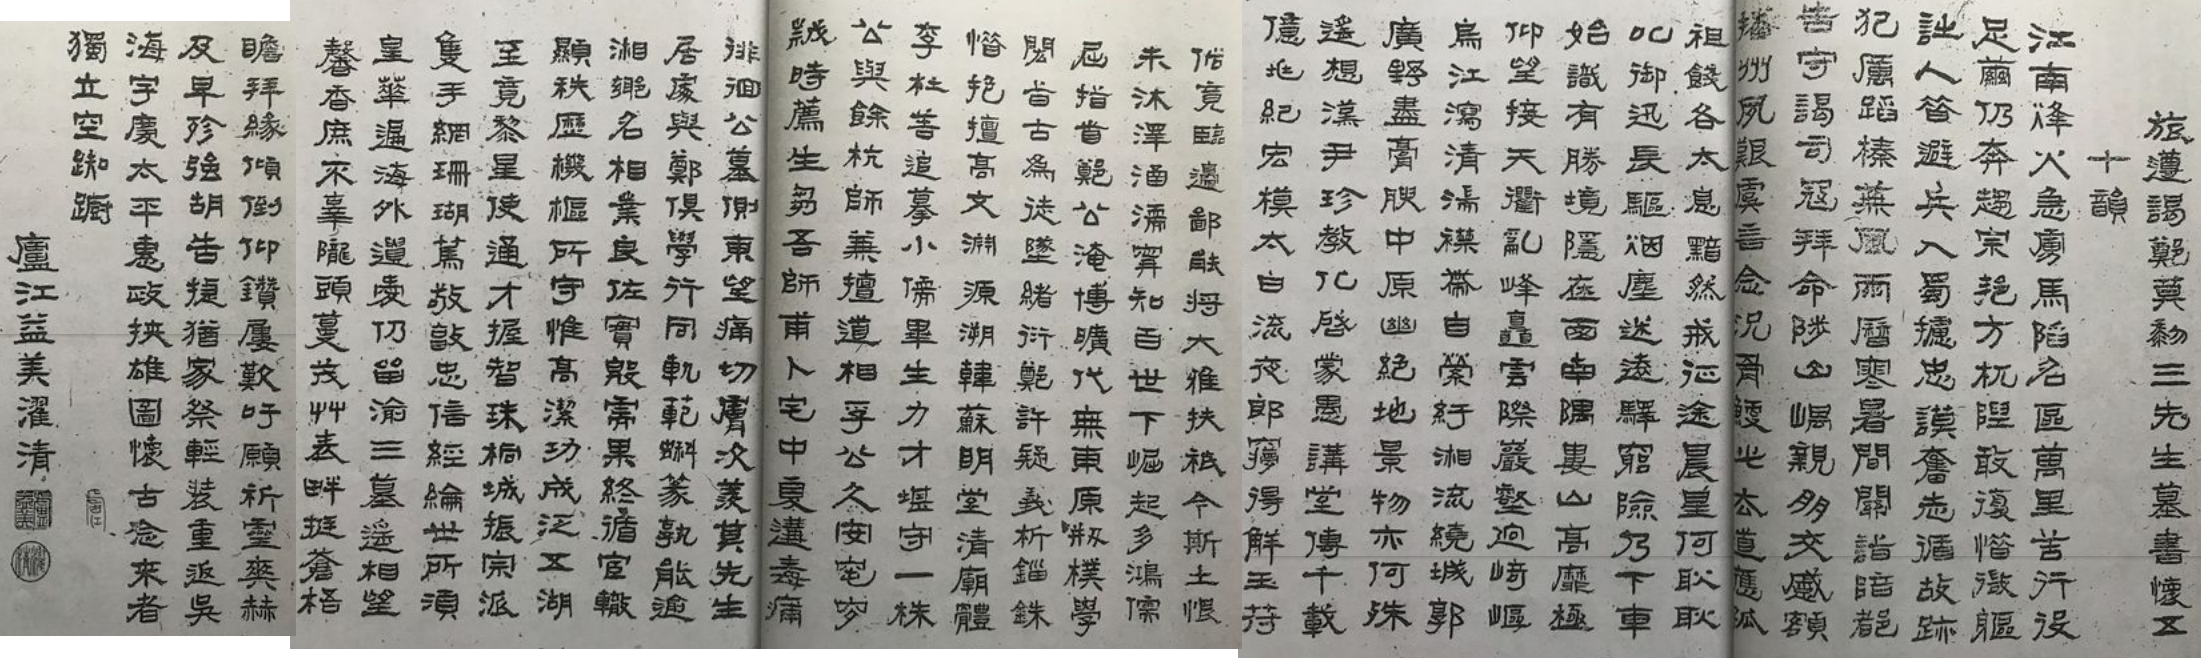 旅遵謁鄭莫黎三先生墓書懷五
十韻
江南烽火急虜馬陷名區萬里苦行役
足繭仍奔趨宗方杌隉敢復惜微軀
人咎避兵入蜀攄忠謨奮志循故跡
犯厲蹈榛蕪風雨曆寒暑間關詣陪都
告守謁司寇拜命陟山嵎親朋交慼額
播州夙艱虞吾念況骨鯁此去道應孤
祖餞各太息黯然戒征途晨星何耿耿
叱御迅長驅烟塵迷遠驛窮險乃下車
始識有勝境隱在西南隅婁山高靡極
仰望接天衢亂峰矗雲際巖壑迥崎嶇
烏江瀉清濁襟帶自縈紆湘流繞城郭
廣野盡膏腴中原幽絕地景物亦何殊
遙想漢尹珍教化啓蒙愚講堂傳千載
億兆紀宏模太白流夜郎獲得解玉符
竟臨邊鄙能將大雅扶祇今斯土恨
未沐澤涵濡寧知百世下崛起多鴻儒
屈指首鄭公淹博曠代無東原樸學
閎旨古為徒墜緒衍鄭許疑義析錙銖
惜抱擅高文淵源溯韓蘇明堂清廟體
李杜善追摹小畢生力才堪守一株
公與餘杭師兼擅道相孚公久安窀穸
歲時薦生芻吾師甫卜宅中更遘毒痡
徘徊公墓側東望痛切膚次羨莫先生
居處與鄭俱學行同軌範蝌篆孰能逾
湘鄉名相業良佐實殷需果終循宦轍
顯秩歷機樞所守惟高潔功成泛五湖
至竟黎星使通才握智珠桐城振宗派
隻手網珊瑚篤敬敦忠信經綸世所須
皇華遍海外遺愛仍留渝三墓遙相望
馨香庶不辜隴頭蔓茂艸表畔挺蒼梧
瞻拜緣傾倒仰鑽屢歎吁願祈靈爽赫
及早殄強胡告捷猶家祭輕裝重返吳
海宇慶太平憲政挾雄圖懷古念來者
獨立空踟躕
廬江益美濯清